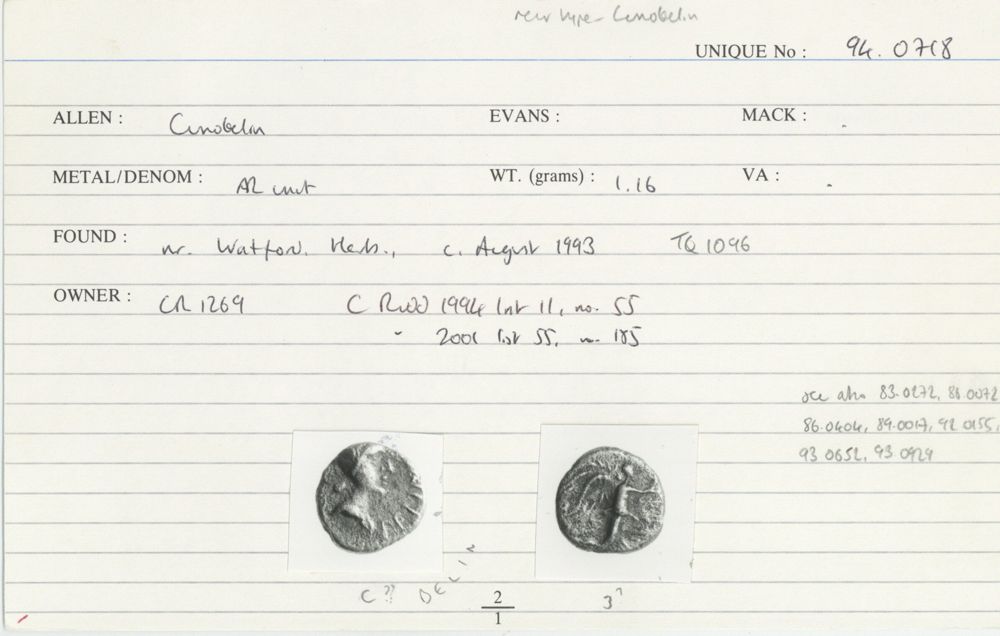 new type - Cunobelin
UNIQUE No : 94.0718
ALLEN : Cunobelin EVANS : MACK : .
METAL/DENOM : AR unit WT. (grams) : 1.16 VA : .
FOUND : nr. Watford. Herts., c. August 1993 TQ 1096
OWNER : CR 1269 C Rudd 1994 list 11, no. 55
" 2001 list 55, no. 185
see also 83.0272, 86.0072
86.0404, 89.0017, 92 0155,
93 0652, 93 0929
C?? DELIN
2
1
3?